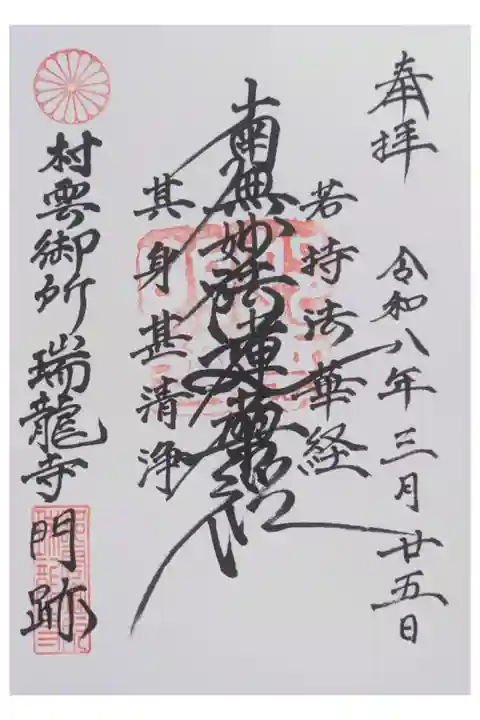 奉拝
令和八年三月廿五日
若持法華経
南無妙法蓮華経
其身甚清浄
村雲御所 瑞龍寺 門跡